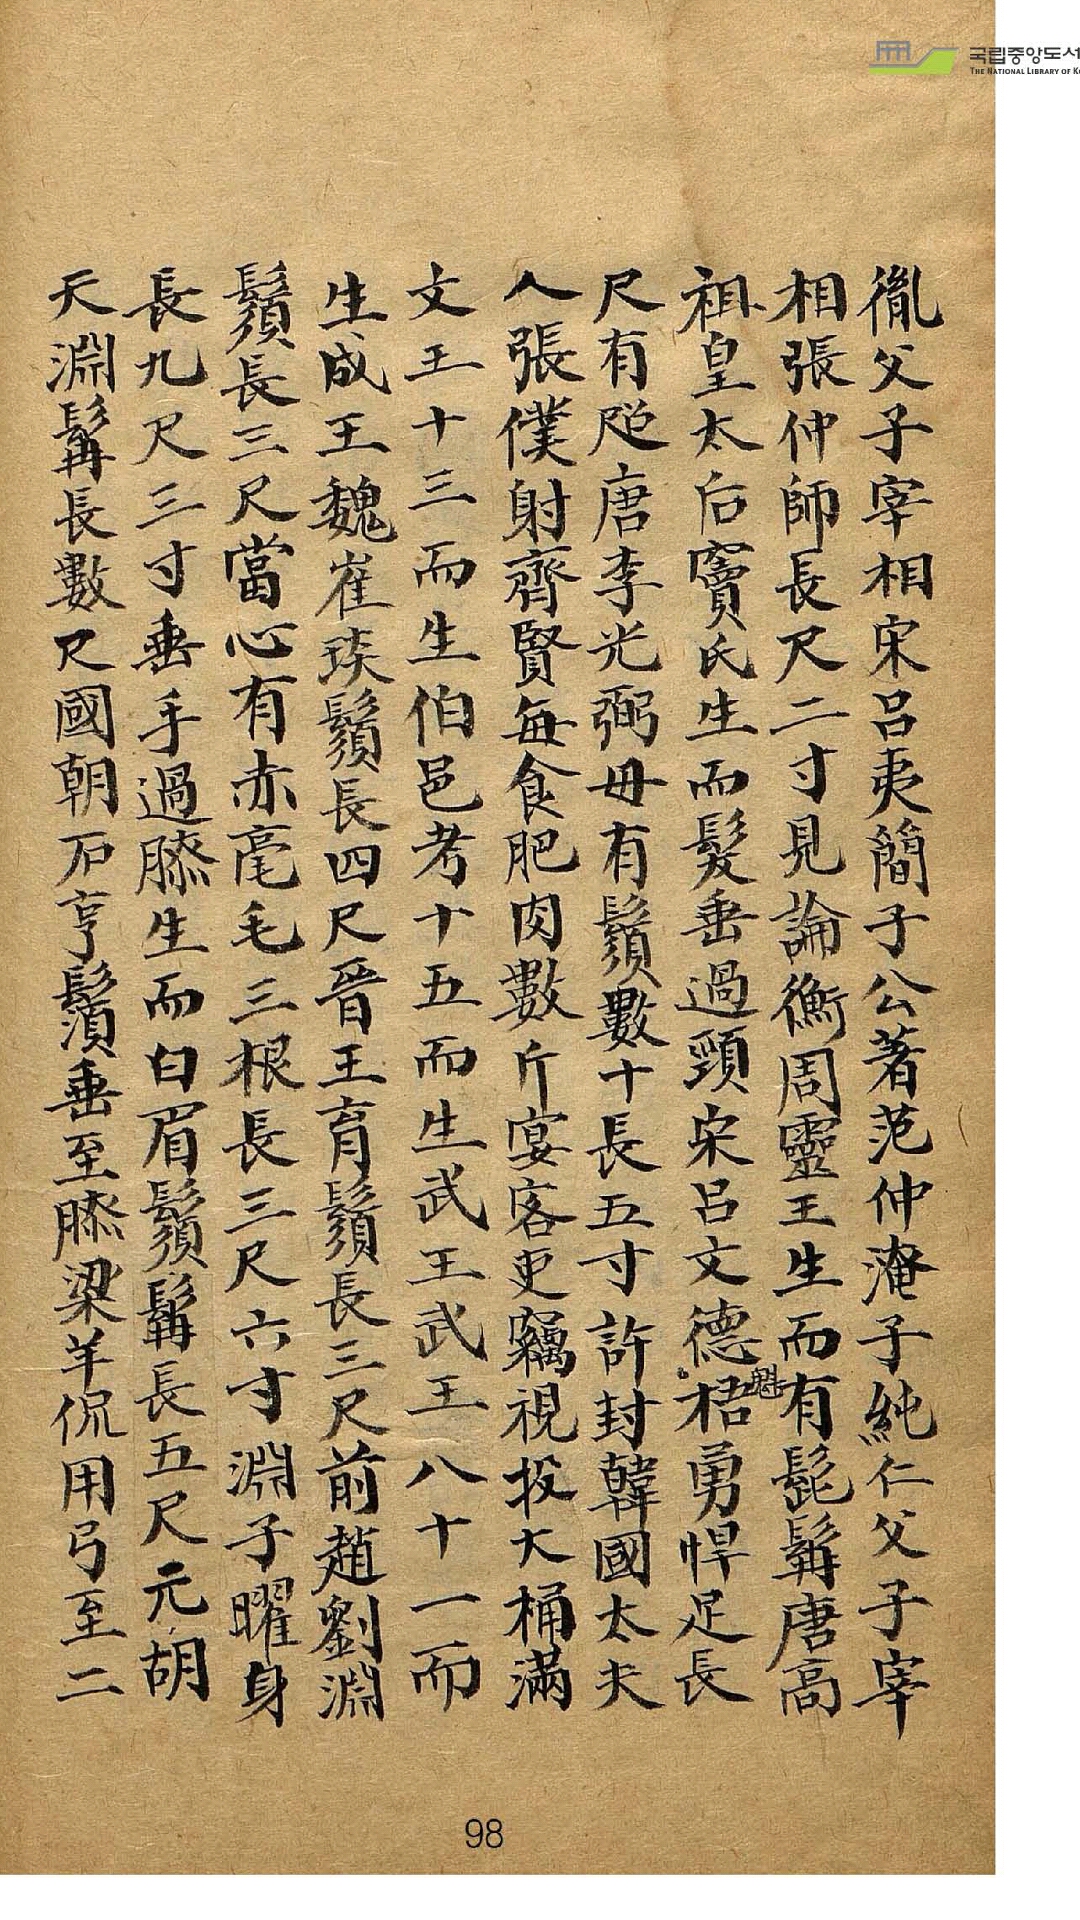 국립중앙도서
THE NATIONAL LIBRARY OF K
胤父子宰相宋呂夷簡子公著范仲淹子純仁父子宰
相張仲師長尺二寸見論衡周靈王生而有髭髯唐高
祖皇太后竇氏生而髮垂過頸宋呂文德魁梧勇悍足長
尺有咫唐李光弼母有鬚數十長五寸許封韓國太夫
人張僕射齊賢每食肥肉數斤宴客吏竊視投大桶滿
文王十三而生伯邑考十五而生武王武王八十一而
生成王魏崔琰鬚長四尺晉王育鬚長三尺前趙劉淵
鬚長三尺當心有赤毫毛三根長三尺六寸淵子曜身
長九尺三寸垂手過膝生而白眉鬚髯長五尺元胡
天淵髯長數尺國朝石亨鬚垂至膝梁羊侃用弓至二
98